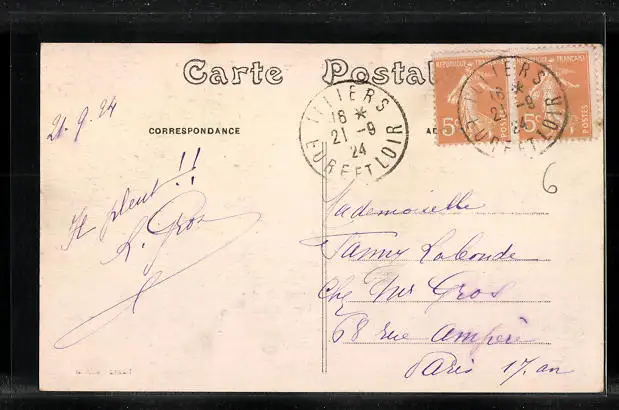 Carte Postale
21.9.24
CORRESPONDANCE
ILLIERS
18 *
21 - 9
24
EURE ET LOIR
REPUBLIQUE FRANÇAISE
5c
POSTES
REPUBLIQUE FRANÇAISE
5c
POSTES
ILLIERS
18 *
21 - 9
24
EURE ET LOIR
6
Il pleut !!
L. Gros
Mademoiselle
Fanny Laconde
Chez Mr Gros
68 rue Ampère
Paris 17. an